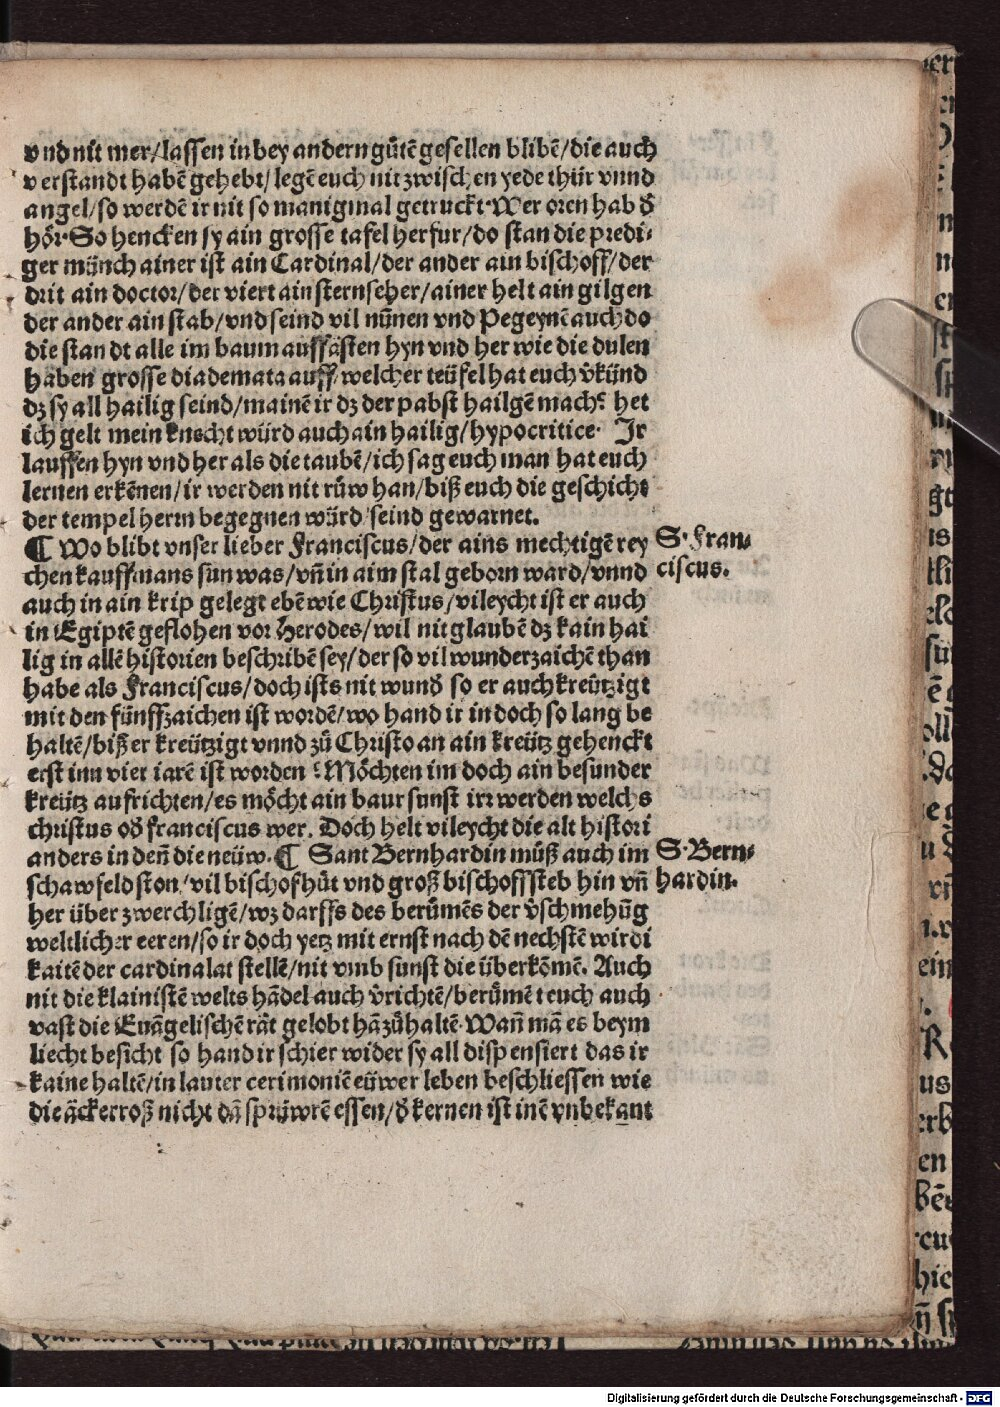 vnd nit mer/lassen in bey andern gůtē gesellen blibē/die auch
verstandt habē gehebt/legē euch nit zwischen yede thür vnnd
angel/so werdē ir nit so manigmal getruckt. Wer oren hab d̄
hör. So hencken sy ain grosse tafel herfur/do stan die predi⸗
ger münch ainer ist ain Cardinal/der ander ain bischoff/der
drit ain doctor/der viert ain sternseher/ainer helt ain gilgen
der ander ain stab/vnd seind vil nūnen vnd Pegeynē auch do
die standt alle im baum auff ästen hyn vnd her wie die dulen
haben grosse diademata auff/welcher teüfel hat euch v̄künd
dz sy all hailig seind/mainē ir dz der pabst hailgē mach? het
ich gelt mein knecht würd auch ain hailig/hypocritice. Ir
lauffen hyn vnd her als die taubē/ich sag euch man hat euch
lernen erkēnen/ir werden nit růw han/biß euch die geschicht
der tempel herrn begegnen würd/seind gewarnet.
¶ Wo blibt vnser lieber Franciscus/der ains mechtigē rey
chen kauffmans sun was/vñ in aim stal geborn ward/vnnd
auch in ain krip gelegt ebē wie Christus/vileycht ist er auch
in Egiptē geflohen vor Herodes/wil nit glaubē dz kain hai
lig in allē historien beschribē sey/der so vil wunderzaichē than
habe als Franciscus/doch ists nit wund̄ so er auch kreützigt
mit den fünffzaichen ist wordē/wo hand ir in doch so lang be
haltē/biß er kreützigt vnnd zů Christo an ain kreütz gehenckt
erst inn vier iarē ist worden? Möchten im doch ain besunder
kreütz aufrichten/es möcht ain baur sunst irr werden welchs
christus od̄ franciscus wer. Doch helt vileycht die alt histori
anders in deñ die neüw. ¶ Sant Bernhardin můß auch im
schawfeld ston/vil bischofhůt vnd groß bischoffsteb hin vñ
her über zwerch ligē/wz darffs des berůmēs der v̄schmehūg
weltlicher eeren/so ir doch yetz mit ernst nach dē nechstē wirdi
kaitē der cardinalat stellē/nit vmb sunst die überkōmē. Auch
nit die klainistē welts hādel auch v̄richtē/berůmēt euch auch
vast die Euāgelischē rāt gelobt hā zů haltē. Wañ mā es beym
liecht besicht so hand ir schier wider sy all dispensiert das ir
kaine haltē/in lauter cerimoniē eüwer leben beschliessen wie
die äckerroß nicht dā sprüwrē essen/d̄ kernen ist inē vnbekant
S. Fran⸗
ciscus.
S. Bern⸗
hardin.
Digitalisierung gefördert durch die Deutsche Forschungsgemeinschaft - DFG